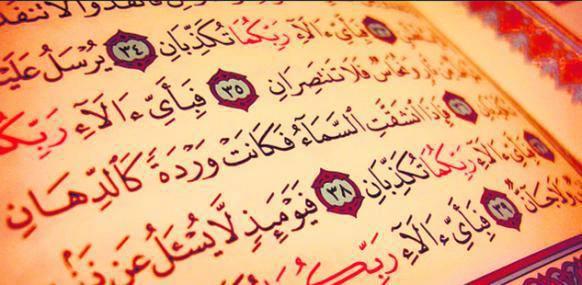 ءَالَآءِ رَبِّكُمَا تُكَذِّبَانِ ٣٤ يُرْسَلُ
وَنُحَاسٌ فَلَا تَنتَصِرَانِ ٣٥ فَبِأَىِّ ءَالَآءِ
فَإِذَا ٱنشَقَّتِ ٱلسَّمَآءُ فَكَانَتْ وَرْدَةً كَٱلدِّهَانِ
ءَالَآءِ رَبِّكُمَا تُكَذِّبَانِ ٣٨ فَيَوْمَئِذٍ لَّا يُسْـَٔلُ عَن
وَلَا جَآنٌّ ٣٩ فَبِأَىِّ ءَالَآءِ